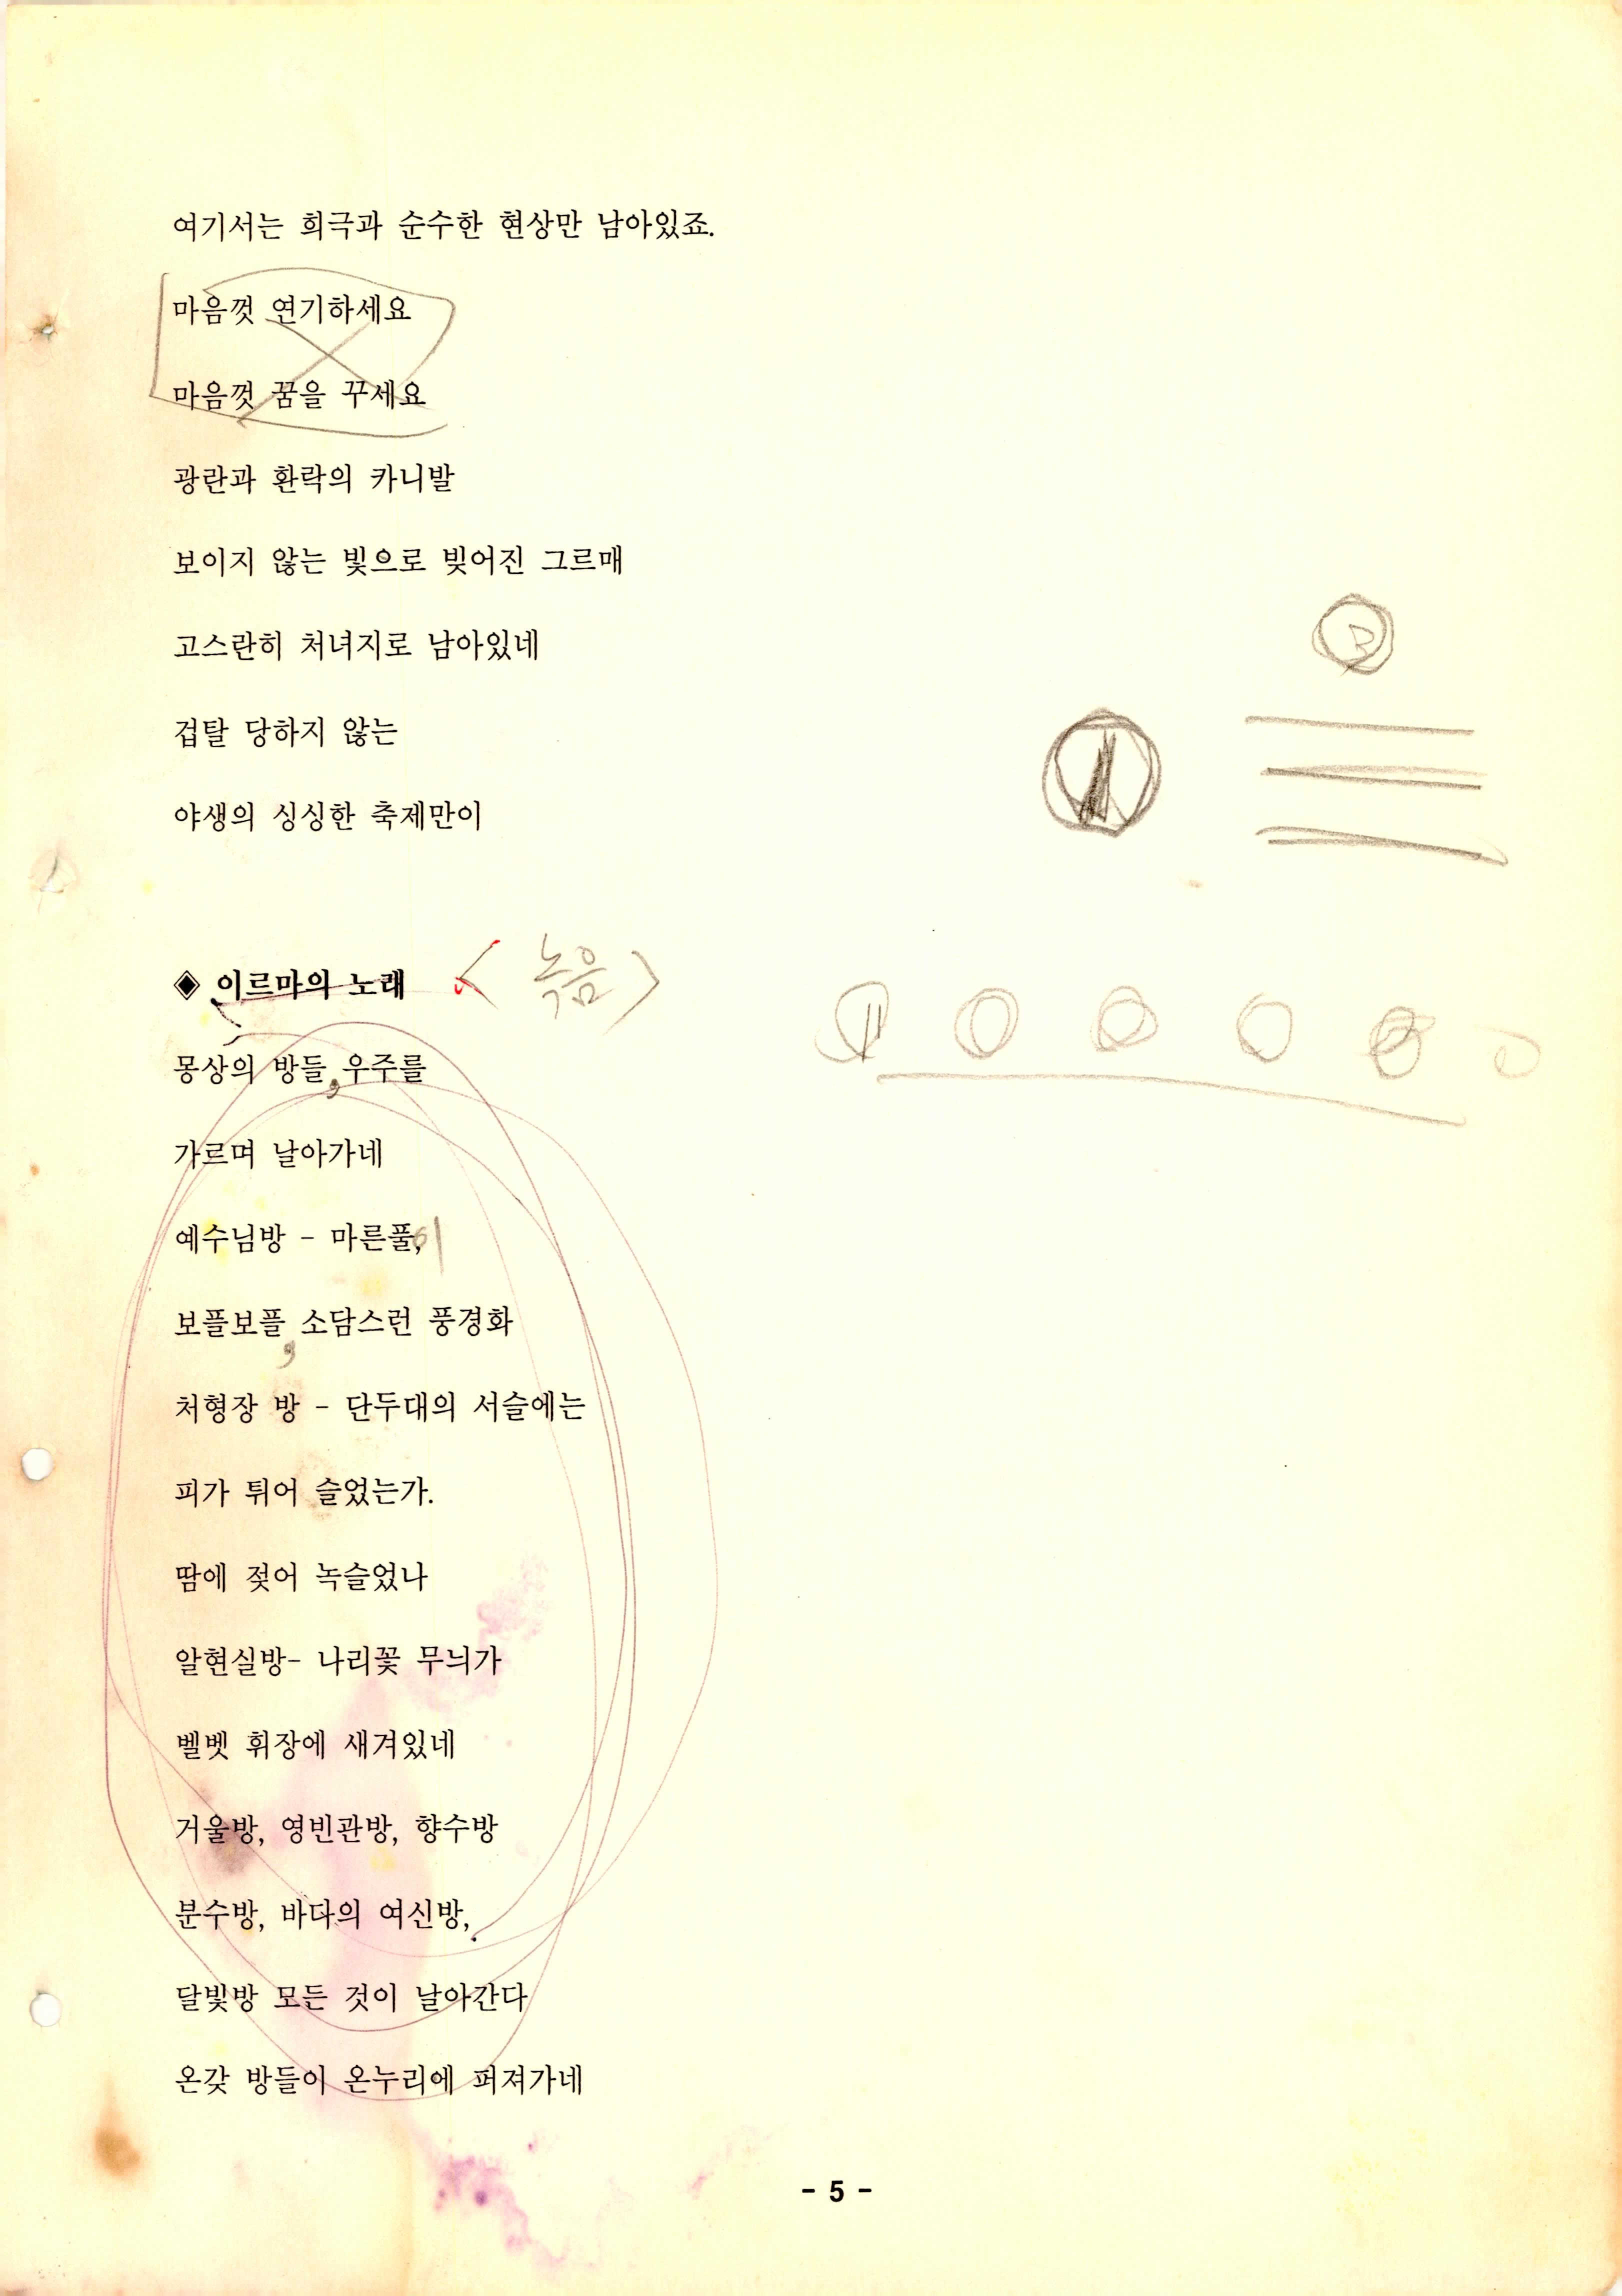 여기서는 희극과 순수한 현상만 남아있죠.
마음껏 연기하세요
마음껏 꿈을 꾸세요
광란과 환락의 카니발
보이지 않는 빛으로 빚어진 그르매
고스란히 처녀지로 남아있네
겁탈 당하지 않는
야생의 싱싱한 축제만이
◈ 이르마의 노래 < 녹음 >
몽상의 방들, 우주를
가르며 날아가네
예수님방 - 마른풀이,
보플보플, 소담스런 풍경화
처형장 방 - 단두대의 서슬에는
피가 튀어 슬었는가.
땀에 젖어 녹슬었나
알현실방- 나리꽃 무늬가
벨벳 휘장에 새겨있네
거울방, 영빈관방, 향수방
분수방, 바다의 여신방,
달빛방 모든 것이 날아간다
온갖 방들이 온누리에 퍼져가네
- 5 -